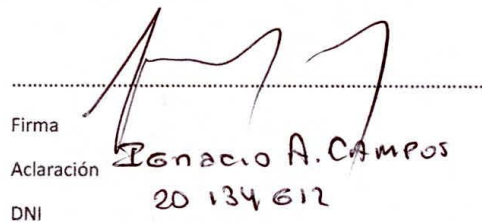 Firma
Aclaración Ignacio A. CAMPOS
20 134 612
DNI